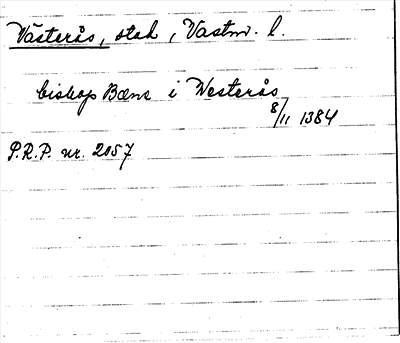 Västerås, stad, Vastm. l.
biskop Bænt i Westerås
8/11 1384
S.R.P. nr. 2057